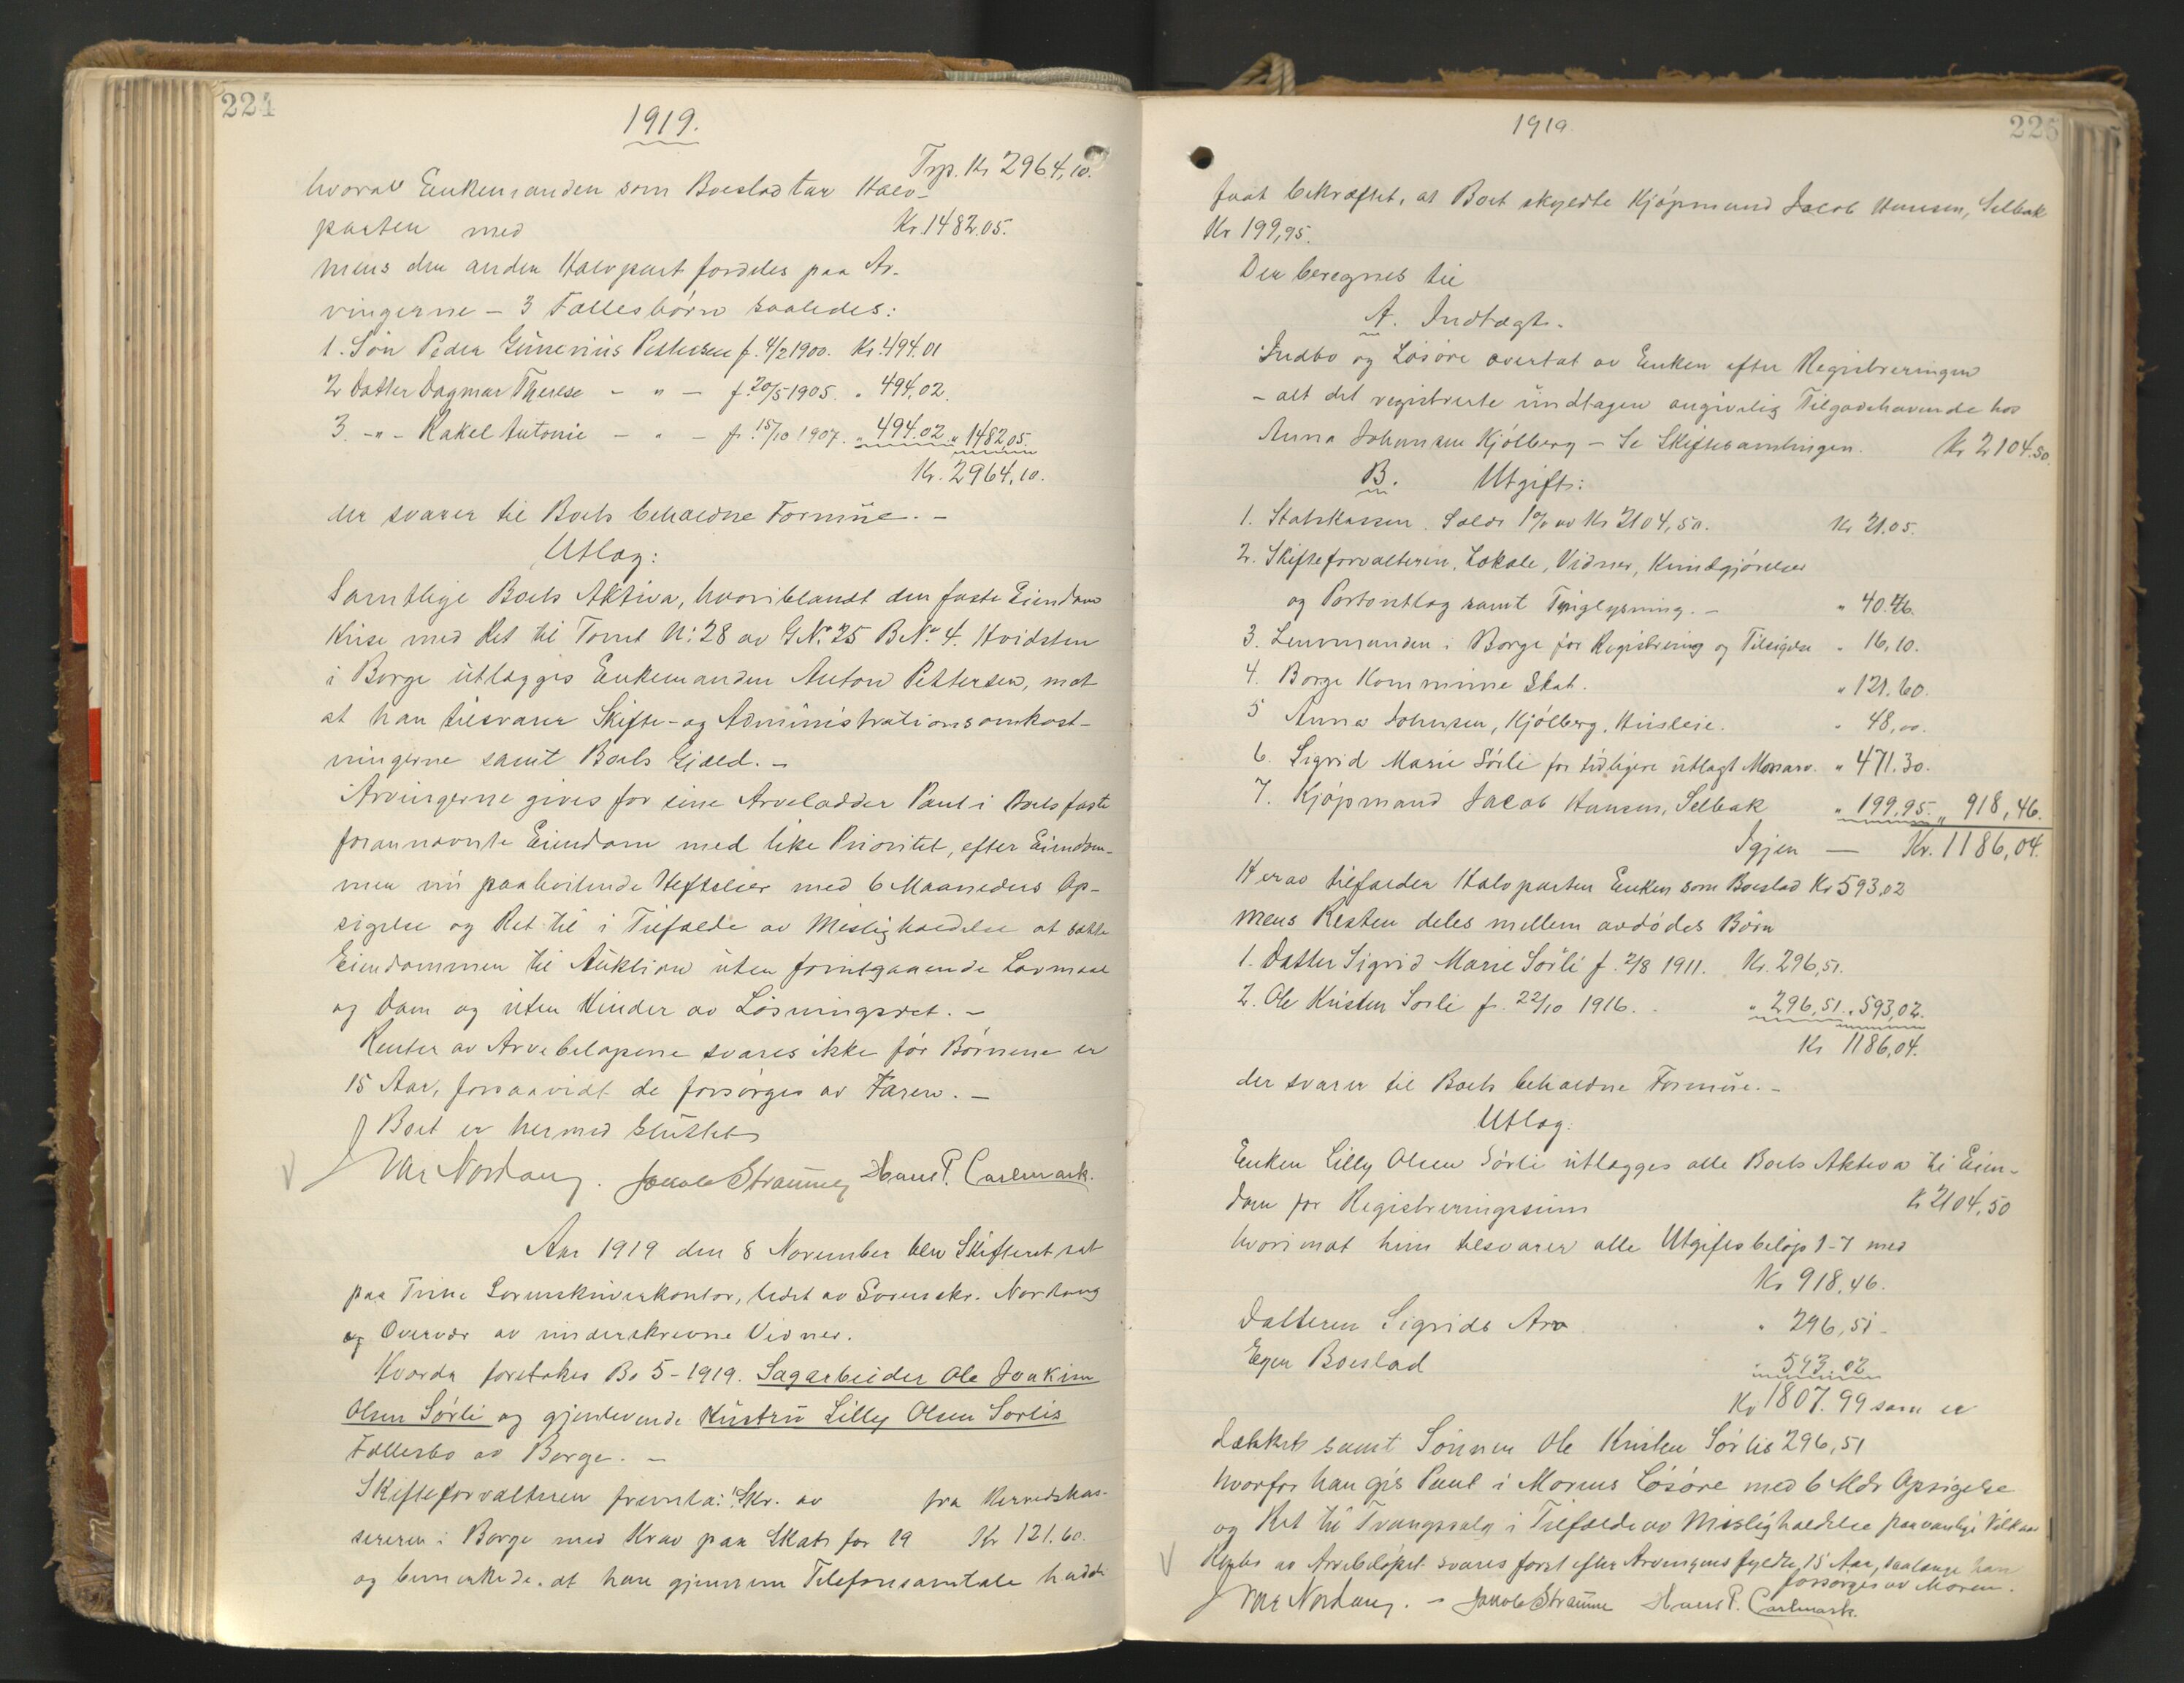 224
1919.
Trp. Kr 2964,10.
hvorav Enkemanden som Boeslod tar Halv-
parten med Kr. 1482.05.
mens den anden Halvpart fordeles paa Ar-
vingerne - 3 Fællesbørn saaledes:
1. Søn Peder Gunerius Pettersen f. 4/2 1900. Kr. 494.01
2 Datter Dagmar Therese - " - f. 20/5 1905. " 494,02.
3. -"- Rakel Antonie - " - f. 15/10 1907. " 494.02 " 1482.05.
Kr. 2964,10.
der svarer til Boets beholdne Formue. -
Utlæg:
Samtlige Boets Aktiva, hvoriblandt den faste Eiendom
Huse med Ret til Tomt No. 28 av G.No. 25 B.No. 4. Hvidsten
i Borge utlægges Enkemanden Anton Pettersen, mot
at han tilsvarer Skifte- og Administrationsomkost-
ningerne samt Boets Gjæld. -
Arvingerne gives for sine Arvelodder Pant i Boets faste
forannævnte Eiendom med like Prioritet, efter Eiendom-
men nu paahvilende Heftelser med 6 Maaneders Op-
sigelse og Ret til i Tilfælde av Misligholdelse at sætte
Eiendommen til Auktion uten forutgaaende Lovmaal
og Dom og uten Hinder av Løsningsret. -
Renter av Arvebeløpene svares ikke før Børnene er
15 Aar, forsaavidt de forsørges av Faren. -
Boet er hermed sluttet
Nordang. Jakob Strømme Hans P. Carlmark.
Aar 1919 den 8 November blev Skifteret sat
paa Tune Sorenskriverkontor, ledet av Sorenskr. Nordang
og Overvær av underskrevne Vidner.
Hvorda foretokes Bo 5-1919. Sagarbeider Ole Joakim
Olsen Sørli og gjenlevende Hustru Lilly Olsen Sørlis
Fællesbo av Borge. -
Skifteforvalteren fremla: Skr. av fra Herredskas-
sereren i Borge med Krav paa Skat for 19 Kr 121.60.
og bemerkede, at han gjennem Telefonsamtale hadde
225
1919.
faat bekræftet, at Boet skyldte Kjøpmand Jacob Hansen, Selbak
Kr 199,95.
Der beregnes til
A. Indtægt.
Indbo og Løsøre overtat av Enken efter Registreringen
- alt det registrerte undtagen angivelig Tilgodehavende hos
Anna Johansen Kjølberg - Se Skiftesamlingen. Kr 2104.50.
B. Utgift:
1. Statskassen. Solds 1% av Kr 2104,50. Kr 21.05.
2. Skifteforvalteren, Lokale, Vidner, Kundgjørelser
og Portoutlæg samt Tinglysning. - " 40.46.
3. Lensmanden i Borge for Registrering og Tilsigelse " 16,10.
4. Borge Kommune Skat. " 121.60.
5 Anna Johnsen, Kjølberg, Husleie. " 48,00.
6. Sigrid Marie Sørli for tidligere utlagt Morsarv. " 471.30.
7. Kjøpmand Jacob Hansen, Selbak " 199,95. " 918,46.
Igjen — Kr. 1186,04.
Herav tilfalder Halvparten Enken som Boeslod Kr 593,02
mens Resten deles mellem avdødes Børn
1. Datter Sigrid Marie Sørli f. 2/8 1911. Kr. 296,51.
2. Ole Kristen Sørli f. 22/10 1916. " 296,51. " 593,02.
Kr 1186,04.
der svarer til Boets beholdne Formue. -
Utlæg.
Enken Lilly Olsen Sørli utlægges alle Boets Aktiva til Eien-
dom for Registreringssum Kr 2104,50
hvorimot hun tilsvarer alle Utgiftsbeløp 1-7 med
Kr 918,46.
Datteren Sigrids Arv " 296,51 -
Egen Boeslod " 593.02
Kr 1807.99 som er
dækket samt Sønnen Ole Kristen Sørlis 296,51
hvorfor han gis Pant i Morens Løsøre med 6 Mdr Opsigelse
og Ret til Tvangssalg i Tilfælde av Misligholdelse paa vanlige Vilkaar
Renter av Arvebeløpet svares først efter Arvingens fyldte 15 Aar, saalænge han
forsørges av Moren.
Nordang. - Jakob Strømme Hans P. Carlmark.